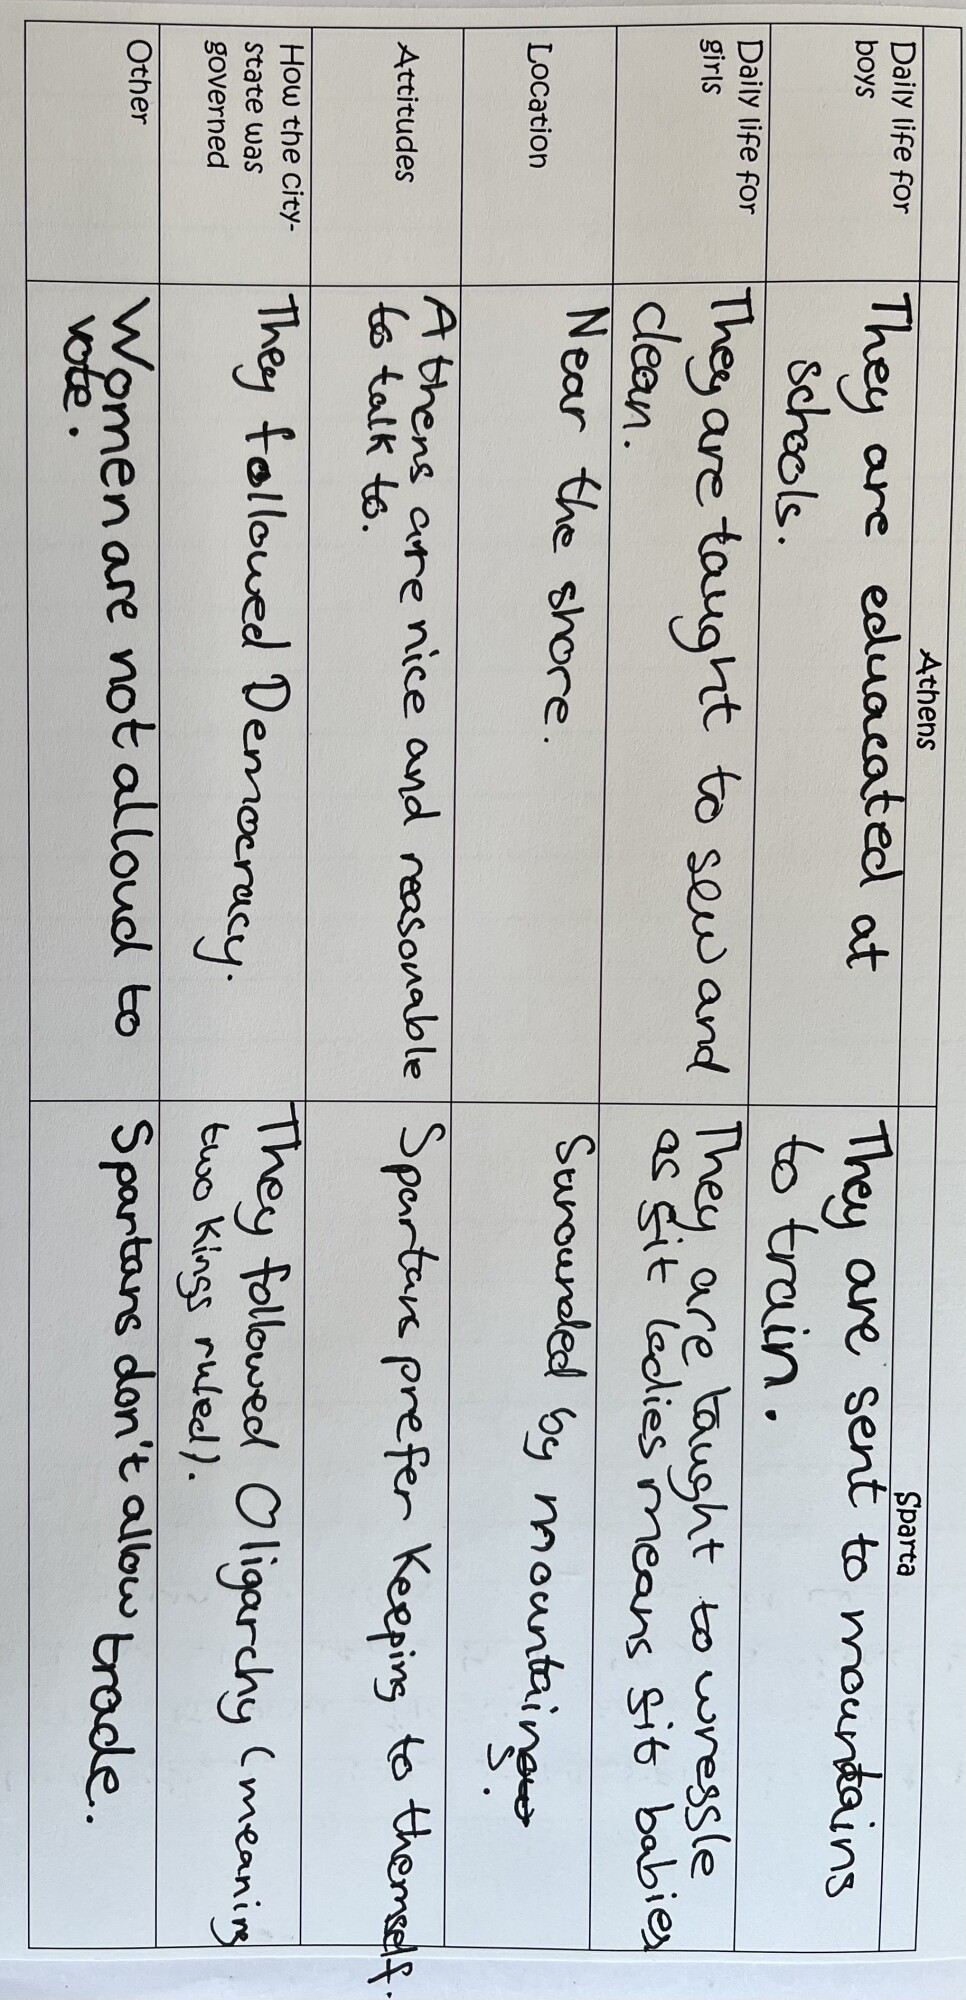 Athens
Sparta
Daily life for
boys
They are eduacated at
schools.
They are sent to mountains
to train.
Daily life for
girls
They are taught to sew and
clean.
They are taught to wressle
as fit ladies means fit babies
Location
Near the shore.
Surounded by mountains.
Attitudes
Athens are nice and reasonable
to talk to.
Spartans prefer Keeping to themself.
How the city-
state was
governed
They followed Democracy.
They followed Oligarchy (meaning
two Kings ruled).
Other
Women are not alloud to
vote.
Spartans don't allow trade..